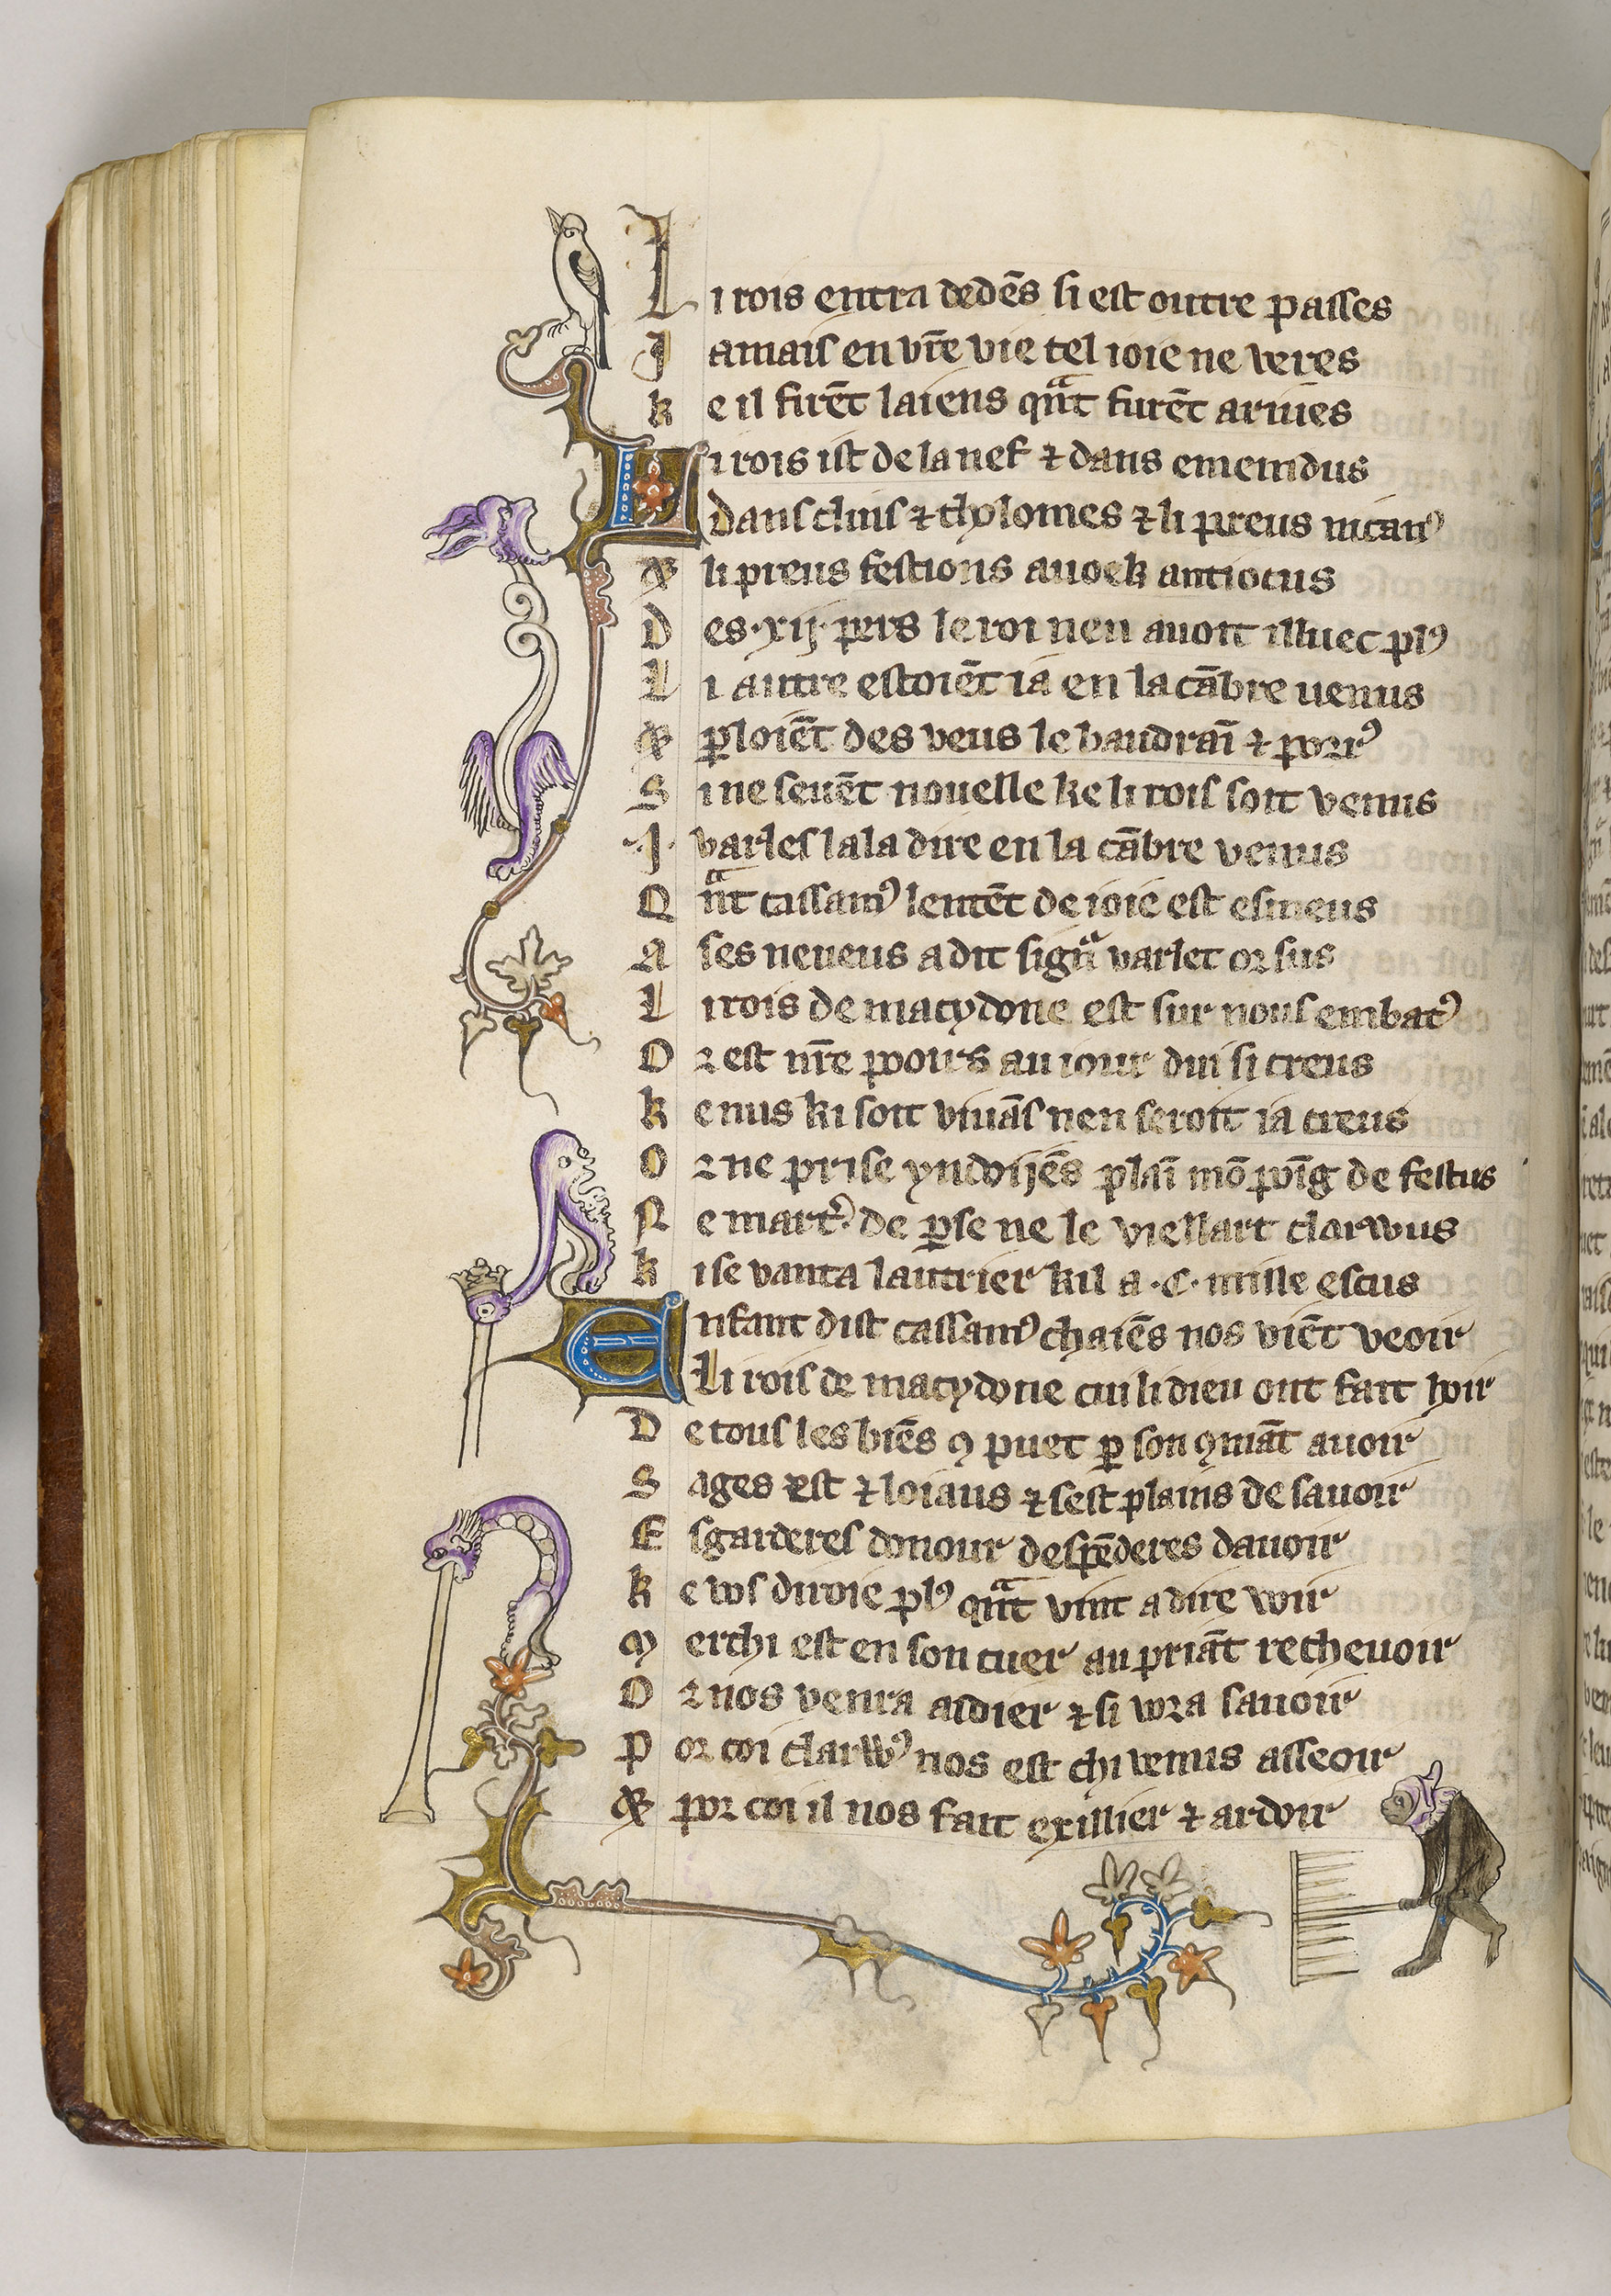 Li rois entra dedēs si est outre passes
Jamais en vr̄e vie tel ioie ne veres
ke il furēt laiens qᵃ̄t furēt armes
Li rois ist de la nef ⁊ dans emenidus
dans clins ⁊ tholomes ⁊ li preus licanꝰ
& li preus festions auoek antiocus
Des ·xij· pers le roi nen auoit illuec plꝰ
Li autre estoiēt ia en la cābre uenus
& ꝑloiēt des veus le baudraī ⁊ porrꝰ
Si ne seuēt nouelle ke li rois soit venus
·J· varles lala dire en la cābre venus
Qn̄t cassamꝰ lentēt de ioie est esmeus
A ses neueus a dit signᵃ varlet or sus
Li rois de macydone est sur nous embatꝰ
Or est nr̄e pooirs au iour dui si creus
ke nus ki soit viuās nen seroit ia creus
Or ne prise yndoijēs plaī mō poīg de festus
Ne martꝰ de ꝑse ne le viellart clarwus
ki se vanta lautrier kil a ·C· mille escus
Enfant dist cassamꝰ chaiēs nos viēt veoir
Li rois de macydone cui li dieu ont fait hoir
De tous les biēs ꝯ puet ꝑ son ꝯmāt auoir
Sages est ⁊ loiaus ⁊ sest plains de sauoir
Esgarderes donour despēderes dauoir
ke vos diroie plꝰ qᵃ̄t vint a dire voir
Merchi est en son cuer au priāt recheuoir
Or nos venra aidier ⁊ si vora sauoir
Por coi clarwꝰ nos est chi venus asseoir
& por coi il nos fait exillier ⁊ ardoir